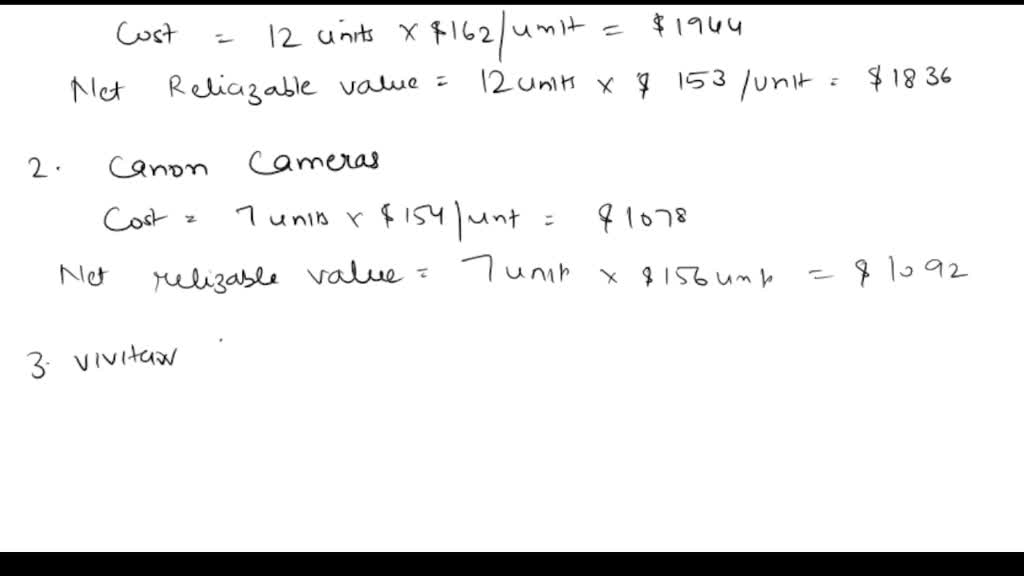 Cost = 12 units × $162/unit = $1944
Net Reliazable value = 12 units × $ 153/unit = $1836
2. Canon Cameras
Cost = 7 units × $154/unt = $1078
Net relizable value = 7 unit × $156 unit = $1092
3. vivitar